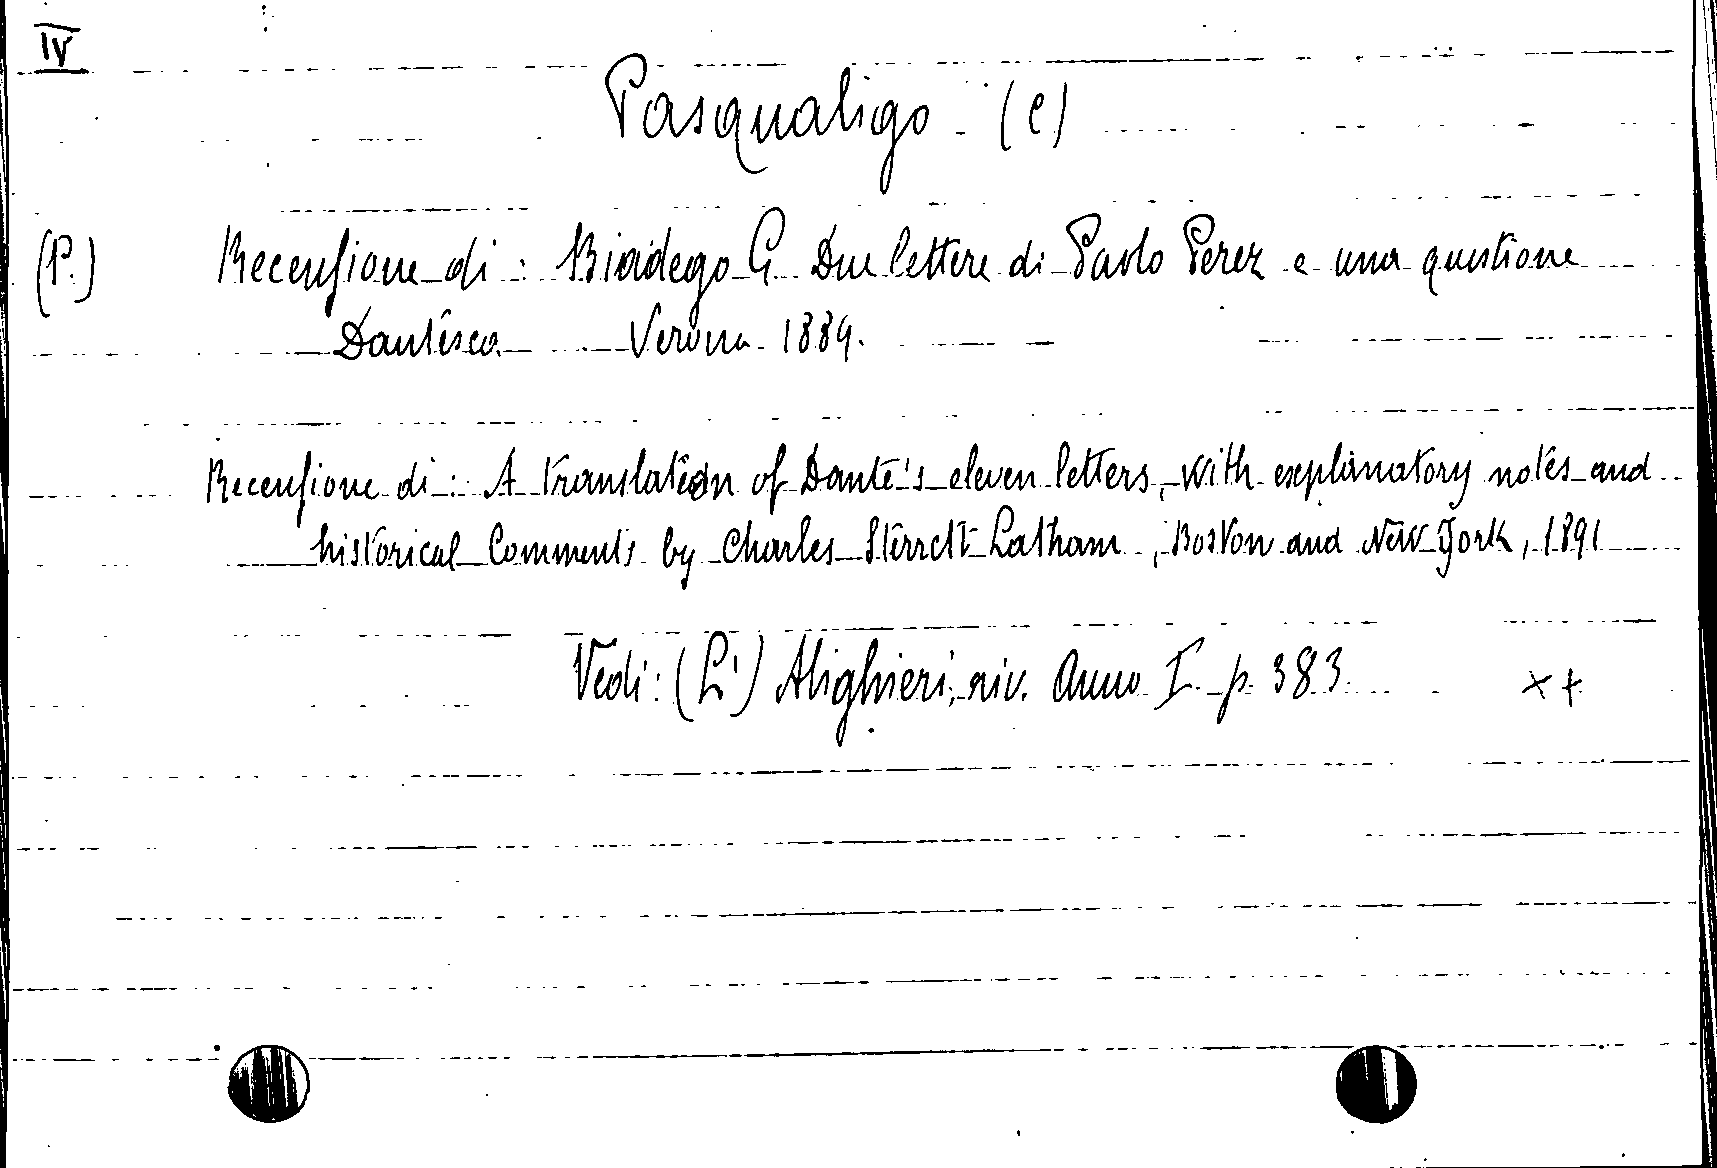 IV
Pasqualigo (C)
(P.) Recensione di: Biadego G. Due lettere di Paolo Perez e una questione
Dantesca Verona 1889.
Recensione di: A translation of Dante's eleven letters, with explanatory notes and
historical Comments by Charles Sterrett Latham, Boston and New York, 1891
Vedi: (L') Alighieri, riv. Anno I p. 383 x+